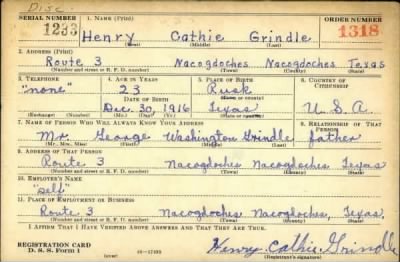 Disc
SERIAL NUMBER 1. NAME (Print) ORDER NUMBER
1233 Henry Cathie Grindle 1318
(First) (Middle) (Last)
2. ADDRESS (Print)
Route 3 Nacogdoches Nacogdoches Texas
(Number and street or R. F. D. number) (Town) (County) (State)
3. TELEPHONE 4. AGE IN YEARS 5. PLACE OF BIRTH 6. COUNTRY OF CITIZENSHIP
"none" 23 Rusk
DATE OF BIRTH (Town or county)
Dec. 30, 1916 Texas U.S.A.
(Exchange) (Number) (Mo.) (Day) (Yr.) (State or country)
7. NAME OF PERSON WHO WILL ALWAYS KNOW YOUR ADDRESS 8. RELATIONSHIP OF THAT PERSON
Mr. George Washington Grindle father
(Mr., Mrs., Miss) (First) (Middle) (Last)
9. ADDRESS OF THAT PERSON
Route 3 Nacogdoches Nacogdoches Texas
(Number and street or R. F. D. number) (Town) (County) (State)
10. EMPLOYER'S NAME
"Self"
11. PLACE OF EMPLOYMENT OR BUSINESS
Route 3 Nacogdoches Nacogdoches, Texas,
(Number and street or R. F. D. number) (Town) (County) (State)
I AFFIRM THAT I HAVE VERIFIED ABOVE ANSWERS AND THAT THEY ARE TRUE.
REGISTRATION CARD Henry Cathie Grindle
D. S. S. Form 1 (over) (Registrant's signature)